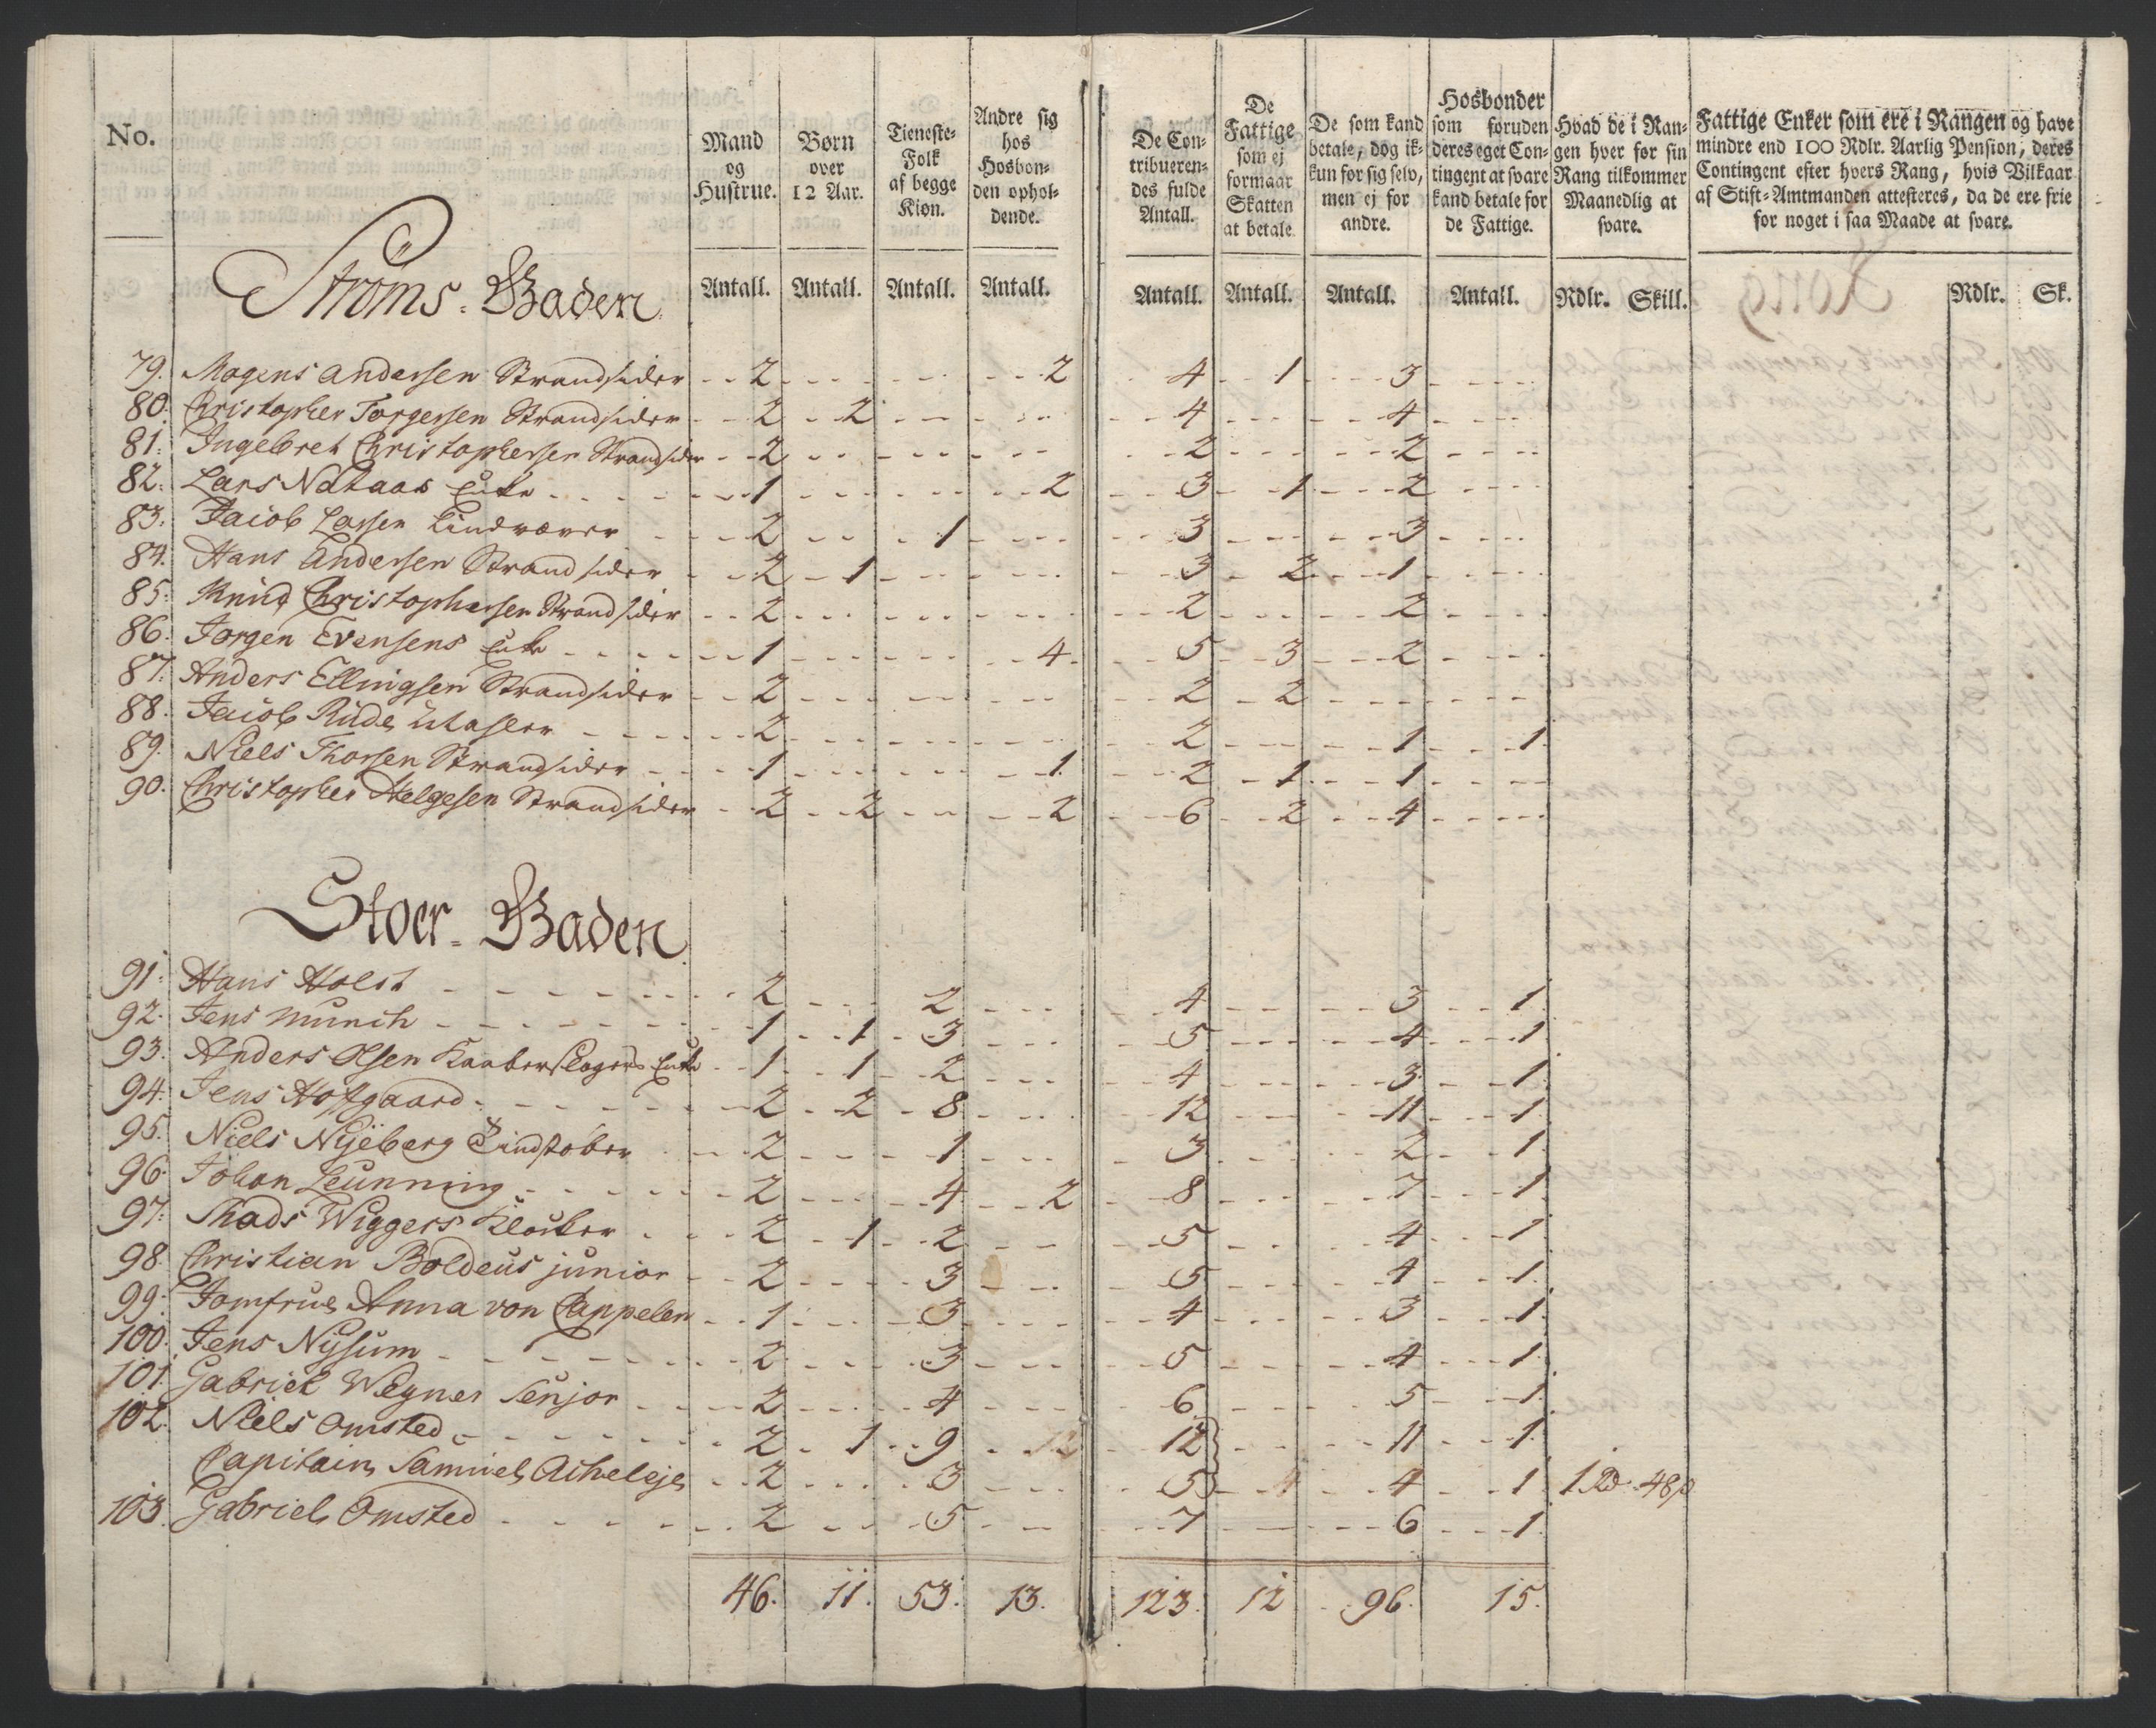 No.
Mand og Hustrue.
Børn over 12 Aar.
Tieneste-Folk af begge Kiøn.
Andre sig hos Hosbon-den ophol-dende.
De Con-tribueren-des fulde Antall.
De Fattige som ej formaar Skatten at betale
De som kand betale, dog ik-kun for sig selv, men ej for andre.
Hosbonder som foruden deres eget Con-tingent at svare kand betale for de Fattige.
Hvad de i Ran-gen hver for sin Rang tilkommer Maanedlig at svare.
Fattige Enker som ere i Rangen og have mindre end 100 Rdlr. Aarlig Pension, deres Contingent efter hvers Rang, hvis Vilkaar af Stift-Amtmanden attesteres, da de ere frie for noget i saa Maade at svare.
Antall. Antall. Antall. Antall. Antall. Antall. Antall. Antall. Rdlr. Skill. Rdlr. Sk.
Strøms-Gaden
79. Mogens Andersen Strandsider 2 2 4 1 3
80. Christopher Torgersen Strandsider 2 2 4 4
81. Ingebret Christophersen Strandsider 2 2 2
82. Lars Nataas Enke 1 2 3 1 2
83. Jacob Lassen 2 1 3 3
84. Hans Andersen Strandsider 2 1 3 2 1
85. Knud Christophersen Strandsider 2 2 2
86. Jørgen Evensens Enke 1 4 5 3 2
87. Anders Ellingsen Strandsider 2 2 2
88. Jacob Rude 2 2 1 1
89. Niels Thorsen Strandsider 1 1 2 1 1
90. Christopher Helgesen Strandsider 2 2 2 6 2 4
Stoer-Gaden
91. Hans Holst 2 2 4 3 1
92. Jens Munch 1 1 3 5 4 1
93. Anders Olsen Kaaberslagers Enke 1 1 2 4 3 1
94. Jens Hofgaard 2 2 8 12 11 1
95. Niels Nyeberg Tindstøber 2 1 3 2 1
96. Johan Leunning 2 4 2 8 7 1
97. Mads Wiggers Klocker 2 1 2 5 4 1
98. Christian Boldeus junior 2 3 5 4 1
99. Jomfrue Anna von Cappelen 1 3 4 3 1
100. Jens Nysum 2 3 5 4 1
101. Gabriel Wegner Senjor 2 4 6 5 1
102. Niels Omsted 2 1 9 12 11 1
Capitain Samuel Acheleje 2 3 5 4 1 1 Rd 48
103. Gabriel Omsted 2 5 7 6 1
46. 11. 53. 13. 123. 12 96. 15.